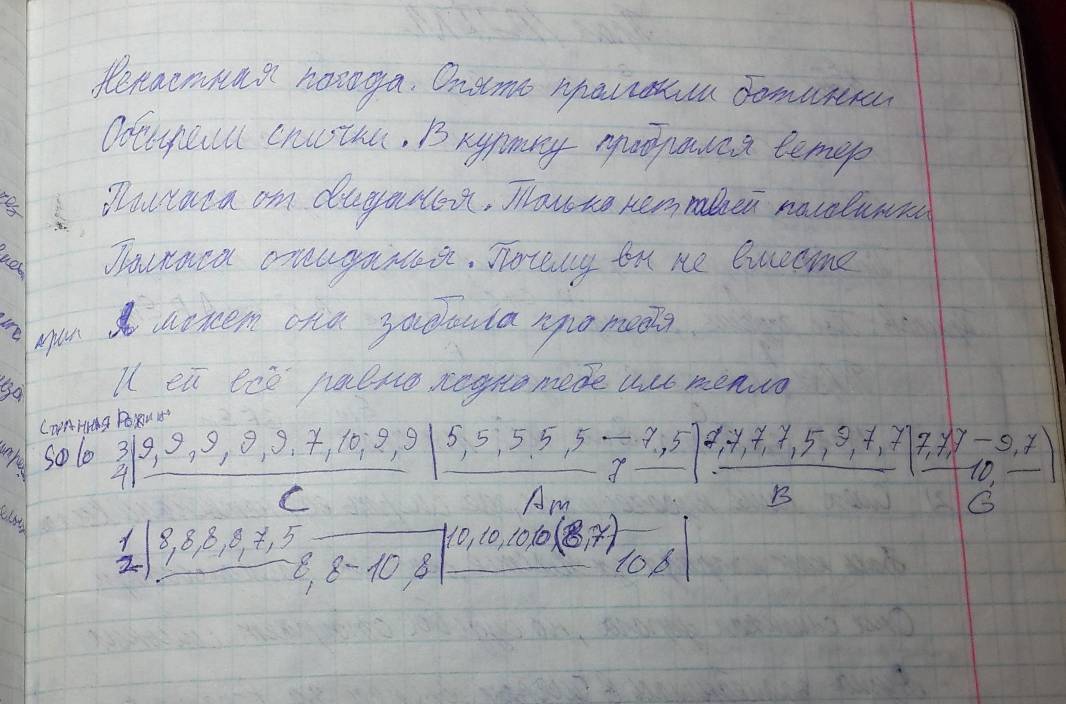 Ненастная погода. Опять промокли ботинки
Отсырели спички. В куртку пробрался ветер
Полчаса от свиданья. Только нет твоей половинки
Полчаса ожиданья. Почему вы не вместе
прип А может она забыла про тебя.
И ей всё равно холодно тебе иль тепло
странная
solo 3 | 9, 9, 9, 9, 9, 7, 10, 9, 9 | 5, 5, 5, 5, 5 — 7, 5 | 7, 7, 7, 7, 5, 9, 7, 7 | 7, 7, 7 — 9, 7 |
4 | 7 | 10,
C Am B G
1 | 8, 8, 8, 8, 7, 5 | 10, 10, 10, 10, (8, 7) |
2 | 8, 8-10, 8 | 10, 8 |